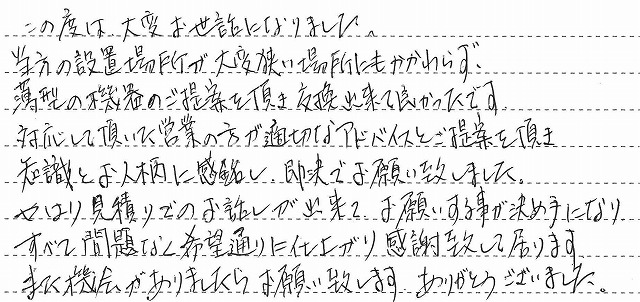 この度は、大変お世話になりました。
当方の設置場所が大変狭い場所にもかかわらず、
薄型の機器のご提案を頂き交換出来て良かったです。
対応して頂いた営業の方が適切なアドバイスとご提案を頂き
知識とお人柄に感銘し、即決でお願い致しました。
やはり見積りでのお話しが出来て、お願いする事が決め手になり
すべて問題なく希望通りに仕上がり感謝致して居ります。
また機会がありましたらお願い致します。ありがとうございました。